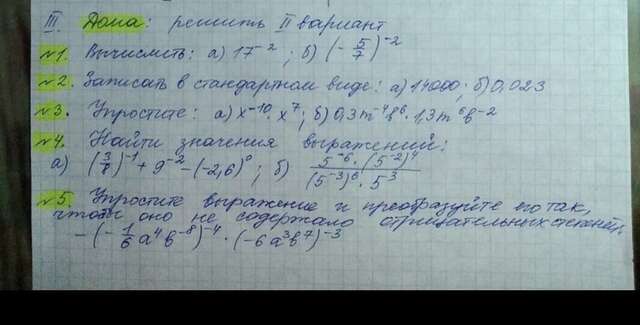 III. Дома: решить II вариант
№1. Вычислить: а) 17⁻²; б) (-5/7)⁻²
№2. Записать в стандартном виде: а) 14000; б) 0,023
№3. Упростите: а) x⁻¹⁰ · x⁷; б) 0,3m⁻⁴b⁶ · 1,3m⁶b⁻²
№4. Найти значения выражений:
а) (3/8)⁻¹ + 9⁻² - (-2,6)⁰; б) 5⁻⁶ · (5⁻²)⁴ / (5⁻³)⁶ · 5³
№5. Упростите выражение и преобразуйте его так,
чтобы оно не содержало отрицательных степеней:
-(-1/6 a⁴b⁻⁸)⁻⁴ · (-6a³b⁷)⁻³